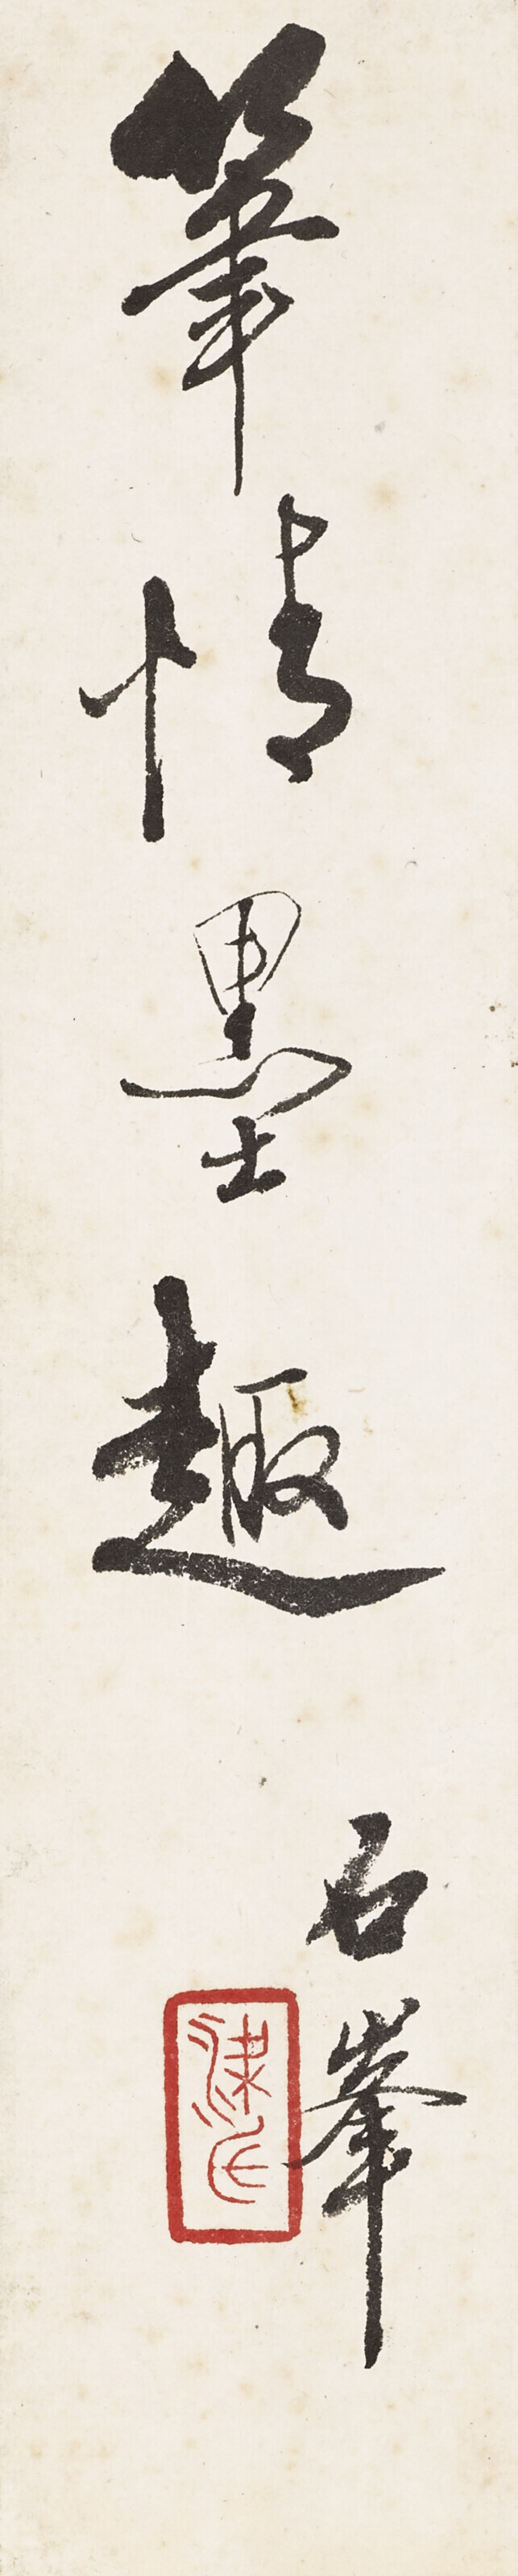 筆情墨趣
石峯